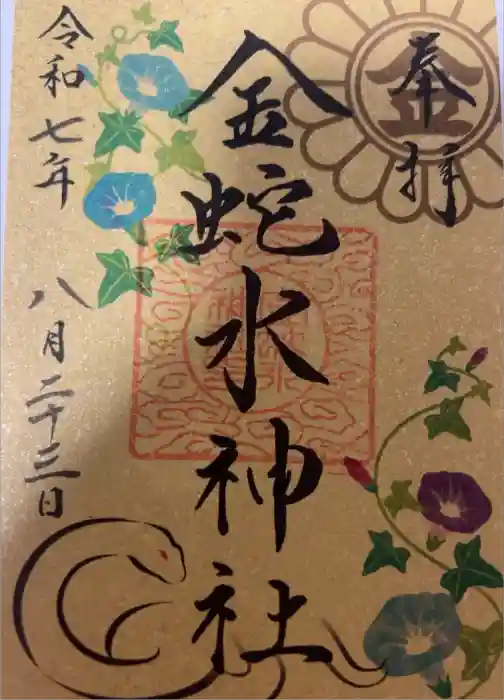 奉拝
金
金蛇水神社
令和七年 八月二十三日